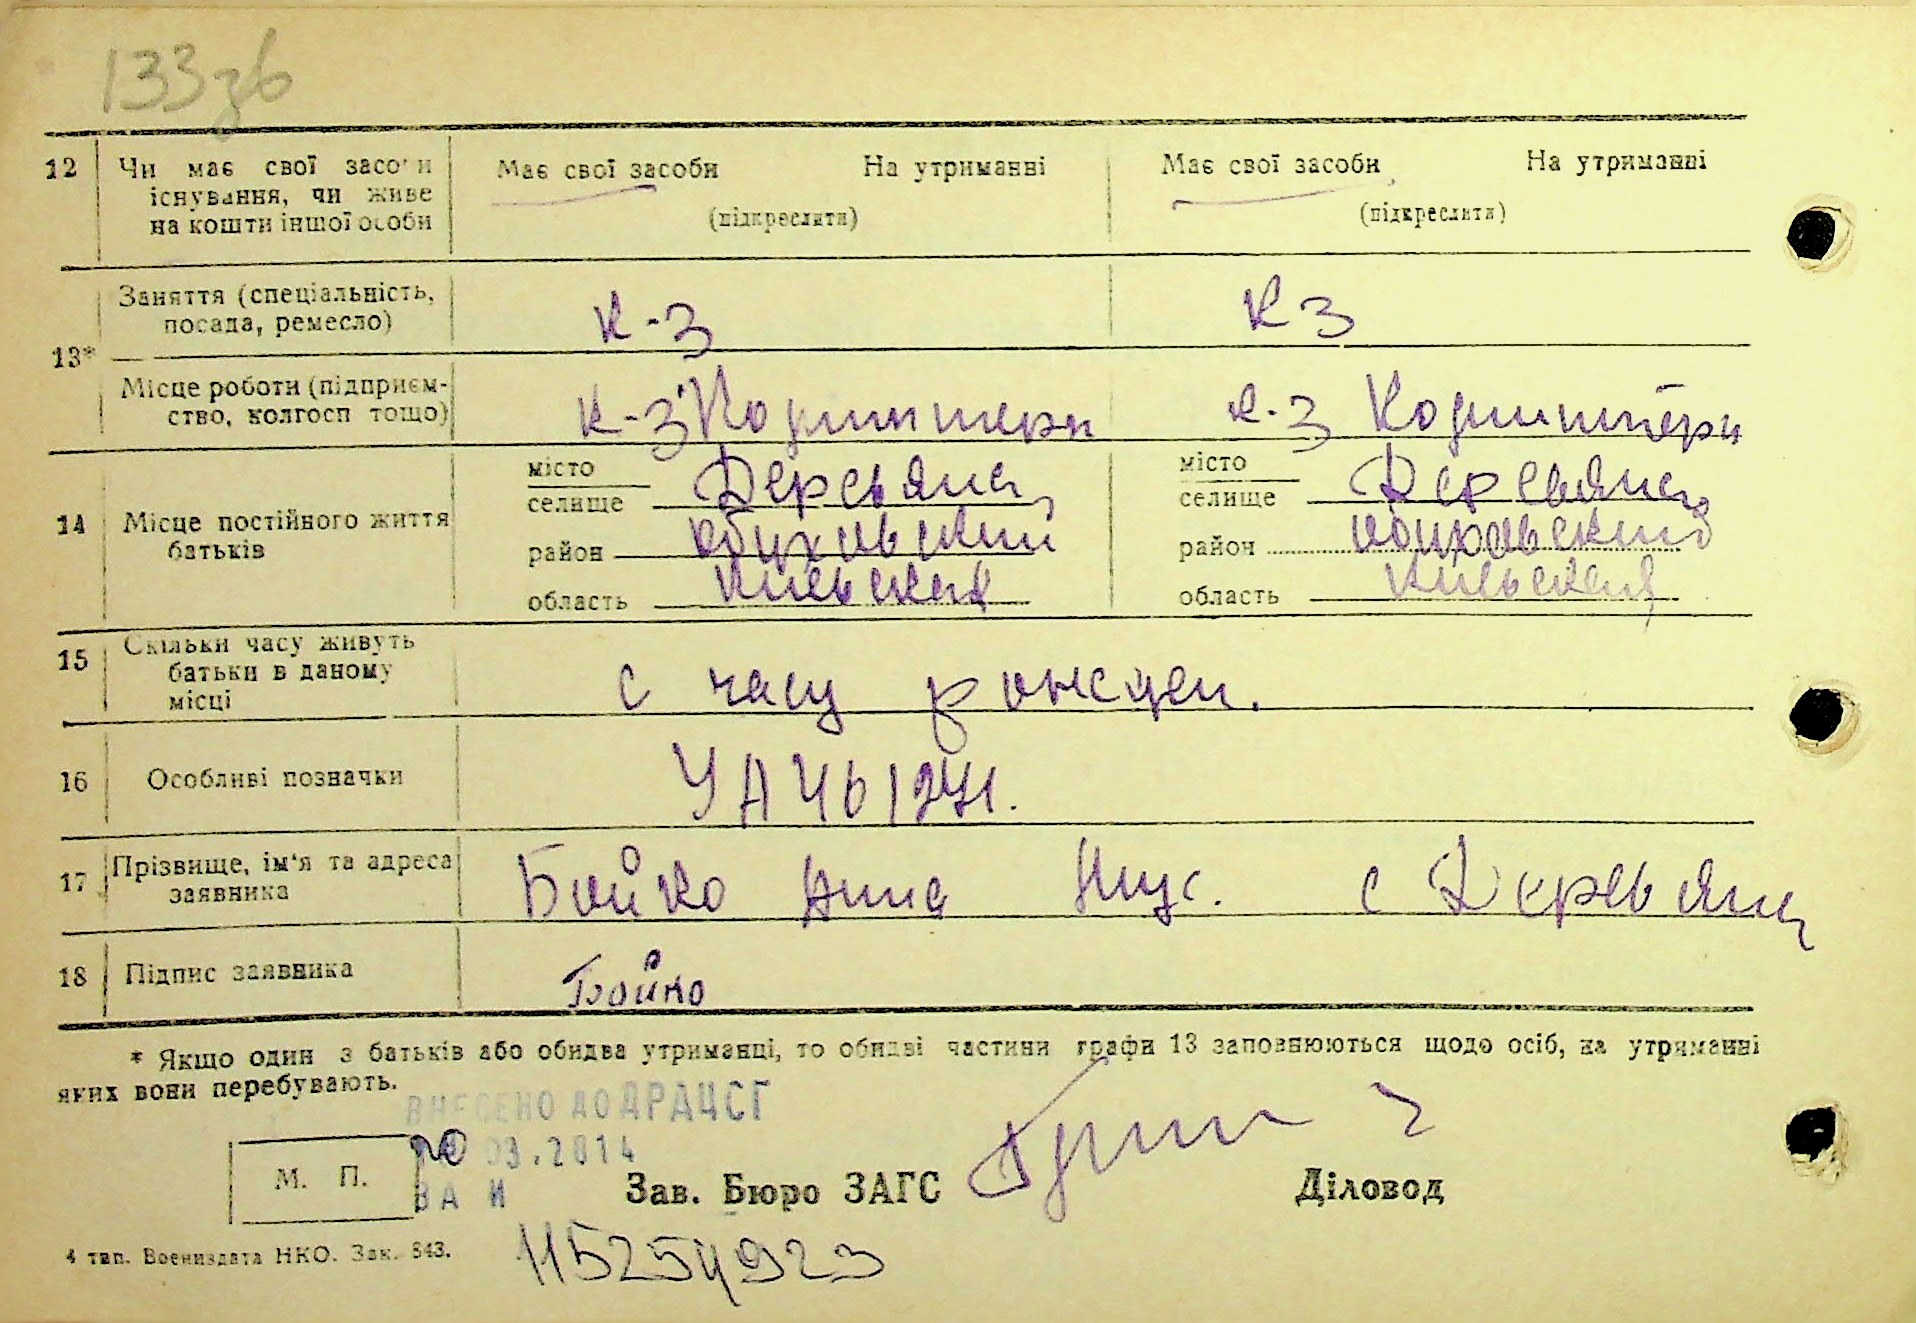 133зв
12 Чи має свої засоби Має свої засоби На утриманні Має свої засоби На утриманні
існування, чи живе
на кошти іншої особи (підкреслити) (підкреслити)
Заняття (спеціальність,
посада, ремесло) к-з кз
13*
Місце роботи (підприєм-
ство, колгосп тощо) к-з Комминтерн к-з Комминтерн
місто місто
селище Деревяна селище Деревяна
14 Місце постійного життя
батьків район Обуховский район Обуховский
область Киевская область Киевская
15 Скільки часу живуть
батьки в даному
місці с часу рожден.
16 Особливі позначки УА Чb
17 Прізвище, ім'я та адреса
заявника Бойко Анна с Деревяна
18 Підпис заявника Бойко
* Якщо один з батьків або обидва утриманці, то обидві частини графи 13 заповнюються щодо осіб, на утриманні
яких вони перебувають.
ВНЕСЕНО ДО ДРАЦСГ
20 03.2014
М. П. ЗА И Зав. Бюро ЗАГС Діловод
4 тип. Воениздата НКО. Зак. 843.
115254923